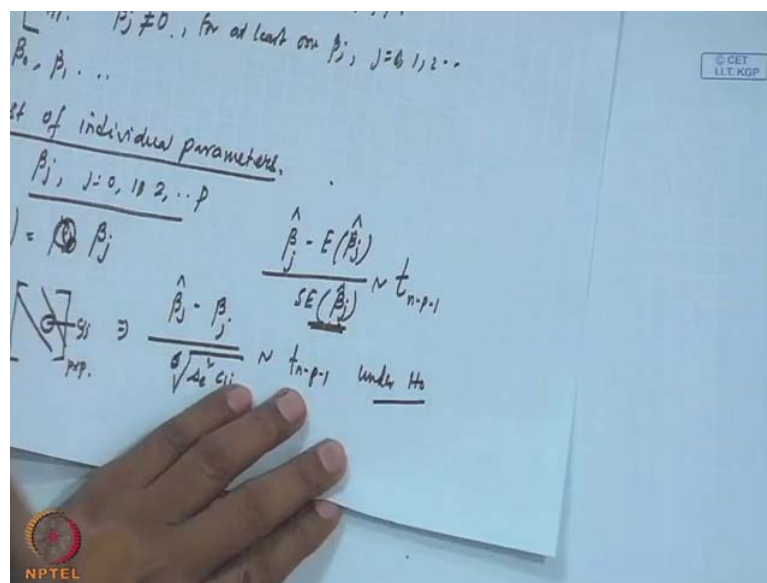 βj ≠ 0., for at least one βj, j=0, 1, 2 ..
β0, β1 . . .
© CET
I.I.T. KGP
st of individual parameters.
βj, j=0, 1, 2, .. p
) = βj
β̂j - E(β̂j)
SE(β̂j)
~ t n-p-1
cjj
⇒
β̂j - βj
√se² cjj
~ t n-p-1 under H0
NPTEL